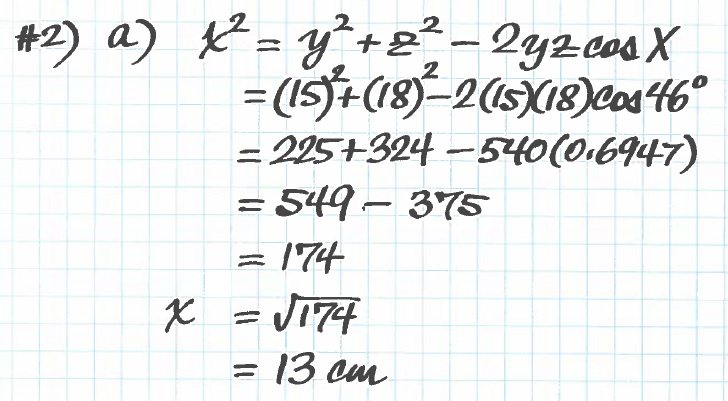 #2) a) x² = y² + z² − 2yz cos X
= (15)² + (18)² − 2(15)(18) cos 46°
= 225 + 324 − 540(0.6947)
= 549 − 375
= 174
x = √174
= 13 cm